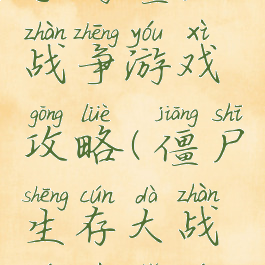 zhàn zhēng yóu xì
战争游戏
gōng lüè jiāng shī
攻略(僵尸
shēng cún dà zhàn
生存大战